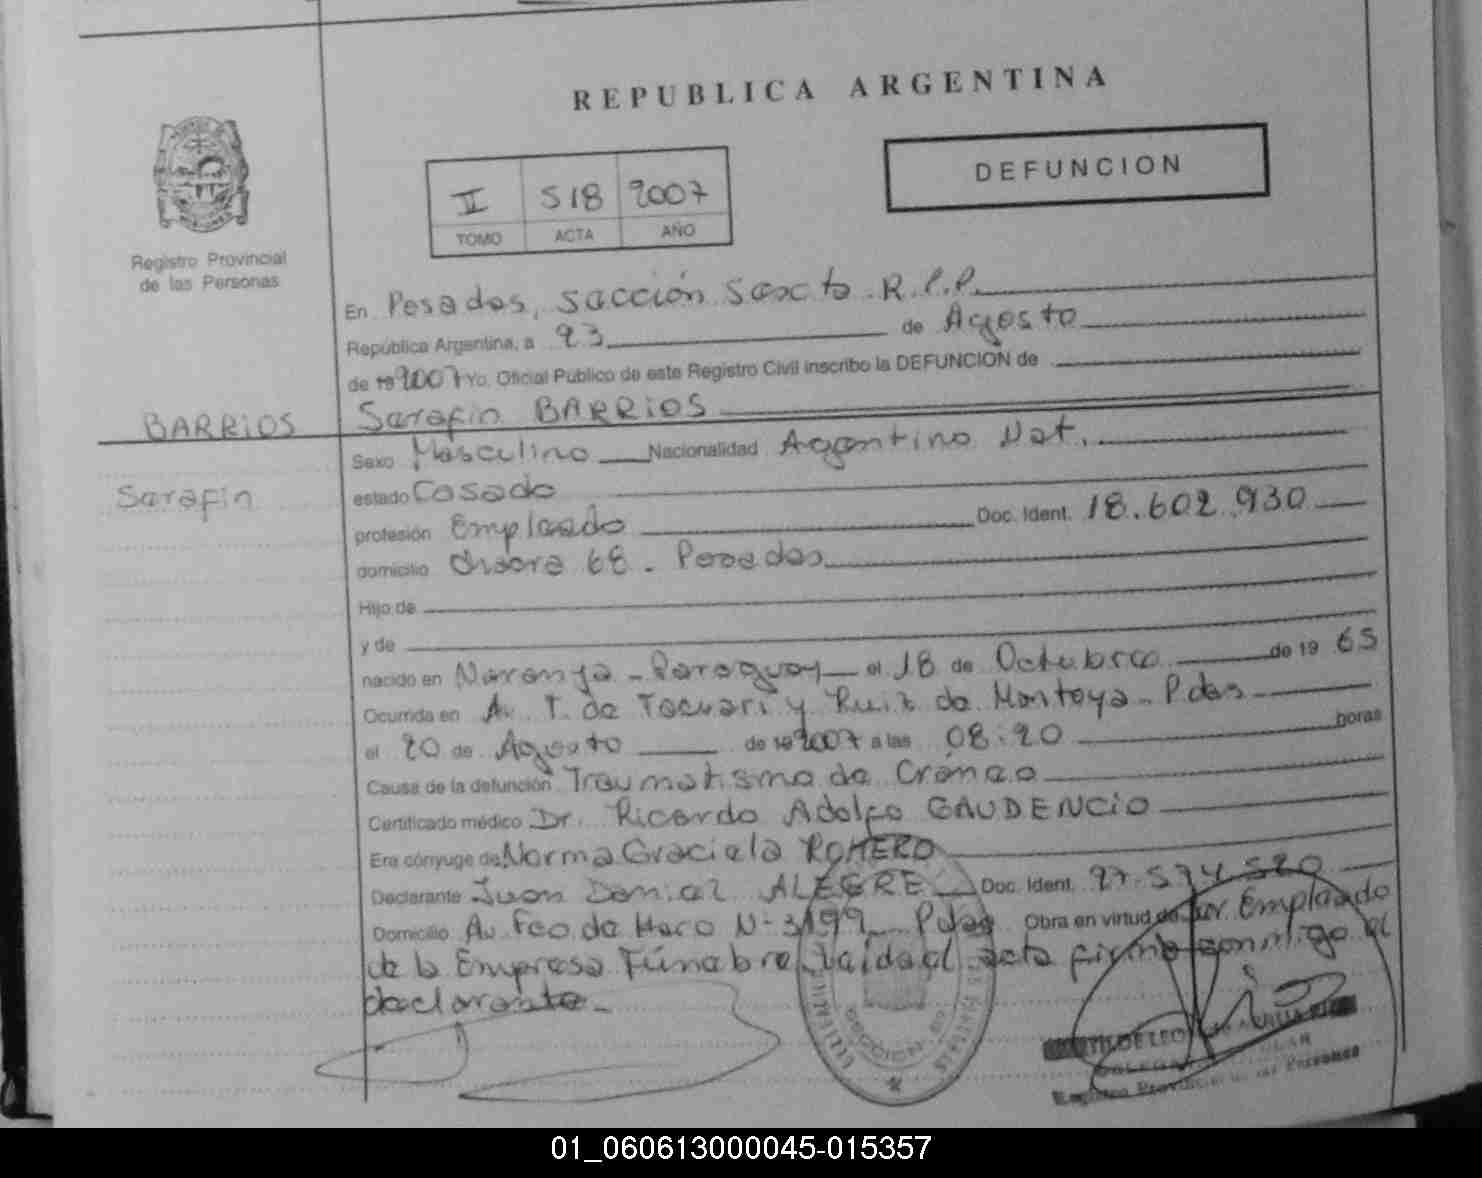 REPUBLICA ARGENTINA
DEFUNCION
II 518 2007
TOMO ACTA AÑO
Registro Provincial
de las Personas
En Posadas, sección Sexta R.P.P.
República Argentina, a 23 de Agosto
de 19 2007 Yo, Oficial Público de este Registro Civil inscribo la DEFUNCION de
BARRIOS
Serafin BARRIOS
Sexo Masculino Nacionalidad Argentino Nat.
Serafin
estado Casado
profesión Empleado Doc. Ident. 18.602.930
domicilio Chacra 68 - Posadas
Hijo de
y de
nacido en Naranja - Paraguay el 18 de Octubre de 19 65
Ocurrida en Av. T. de Tacuari y Ruiz de Montoya - Pdas
el 20 de Agosto de 19 2007 a las 08:20 horas
Causa de la defunción Traumatismo de Cráneo
Certificado médico Dr. Ricardo Adolfo GAUDENCIO
Era cónyuge de Norma Graciela ROMERO
Declarante Juan Daniel ALEGRE Doc. Ident. 27.574.520
Domicilio Av. Fco de Haro N- 3199 Pdas Obra en virtud de ser Empleado
de la Empresa Fúnebre, leida el acta firma conmigo el
declarante -
SECCION
Registro Provincial de las Personas
01_060613000045-015357